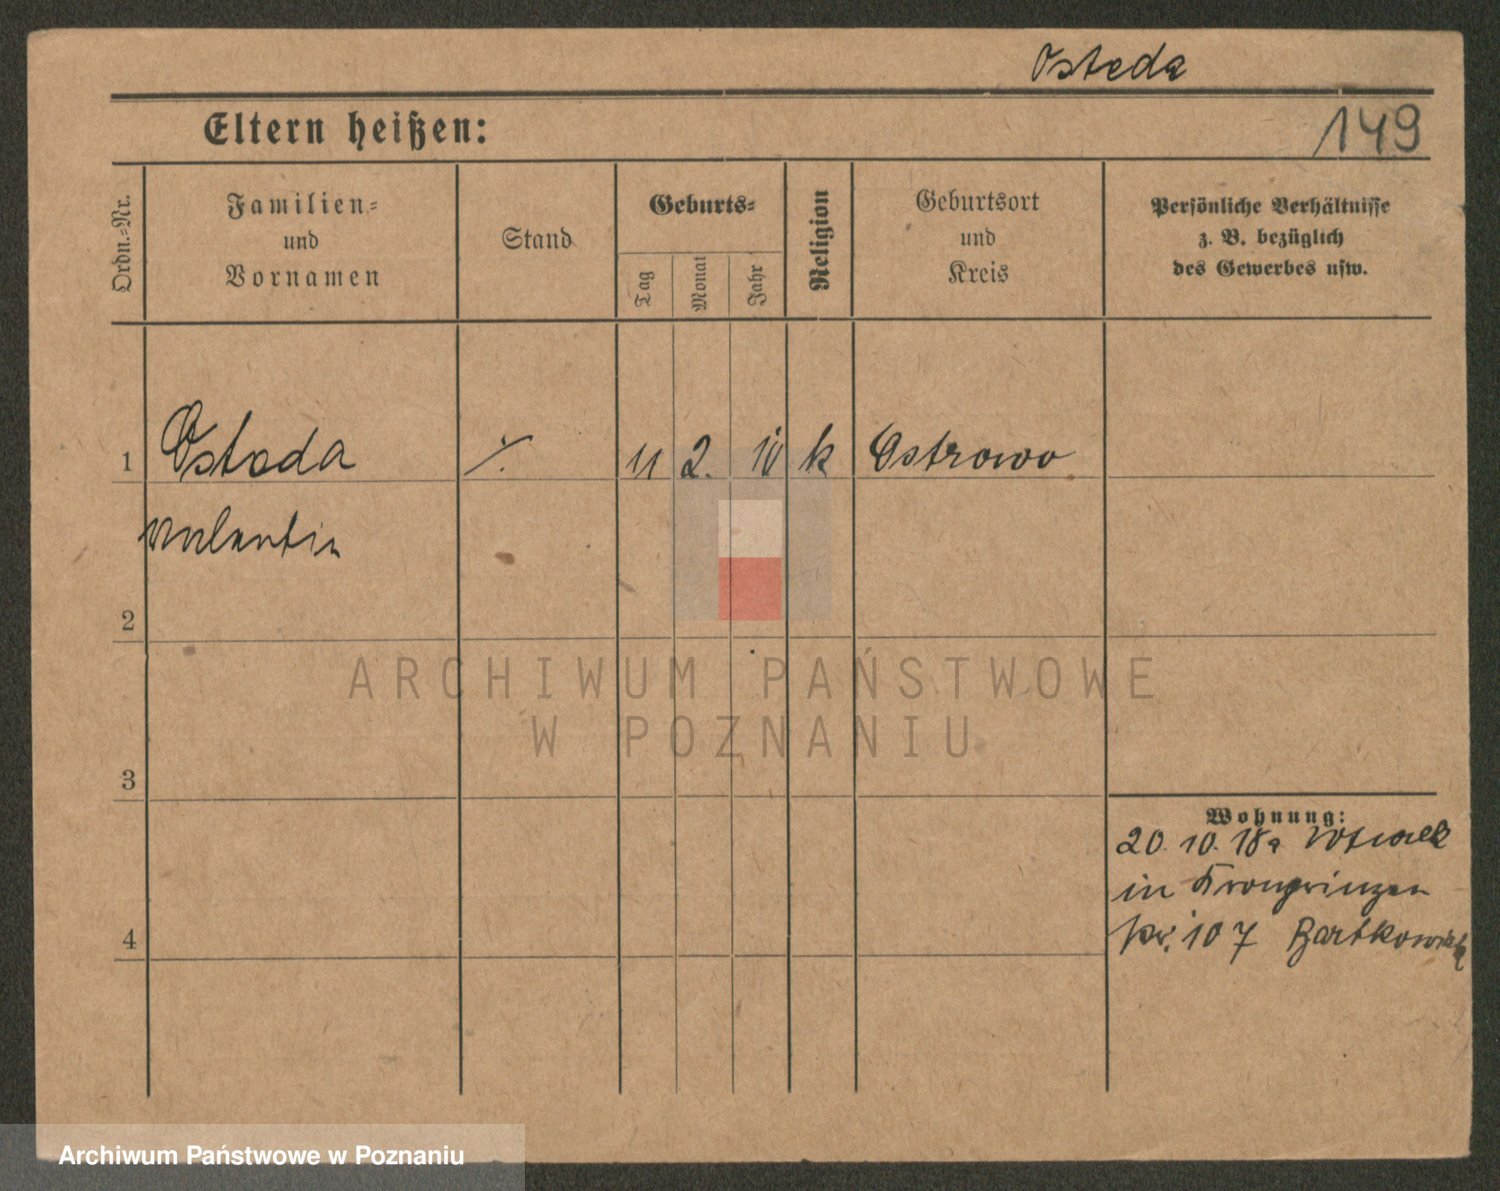 Osteda
149
Eltern heißen:
Ordn.-Nr.
Familien-
und
Vornamen
Stand
Geburts-
Tag
Monat
Jahr
Religion
Geburtsort
und
Kreis
Persönliche Verhältnisse
z. B. bezüglich
des Gewerbes usw.
1 Osteda ·/. 11 2. 10 k Ostrowo
Valentin
2
3
4
Wohnung:
20. 10. 18
in Kronprinzen
107 Bartkowiak
ARCHIWUM PAŃSTWOWE
W POZNANIU
Archiwum Państwowe w Poznaniu